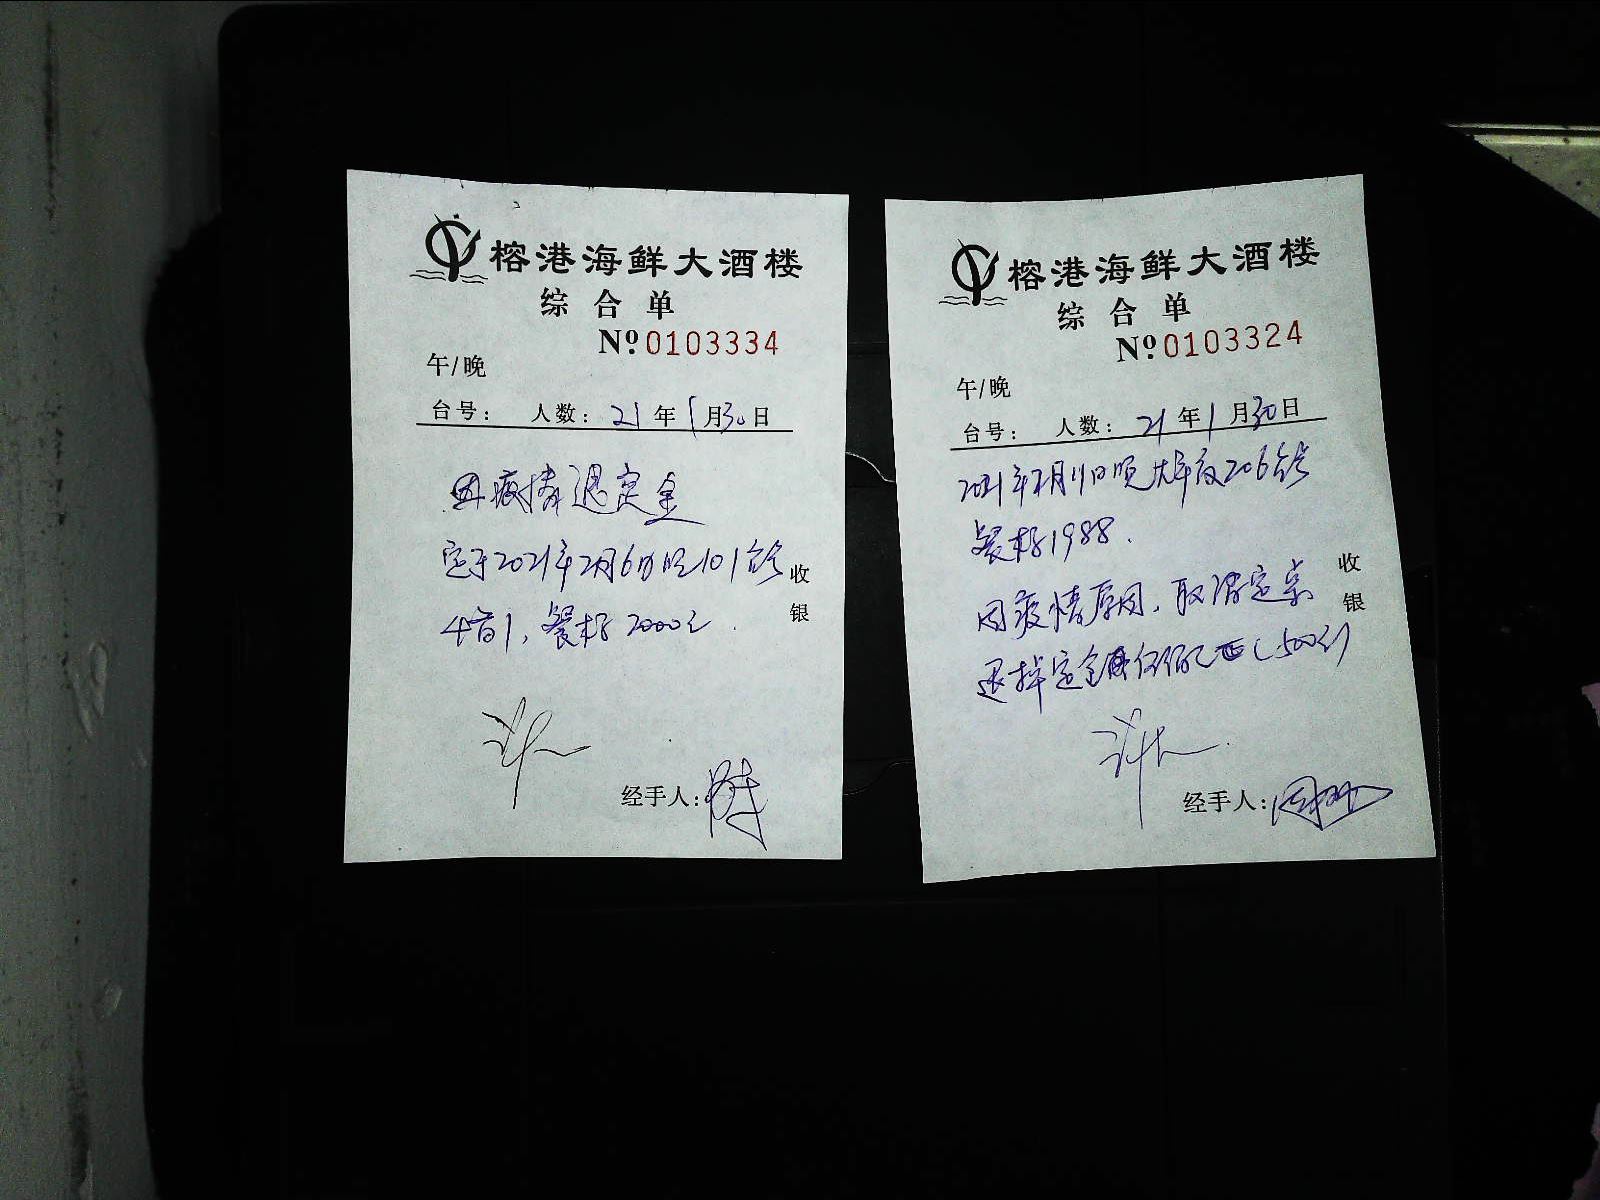 榕港海鲜大酒楼
综合单
Nº 0103334
午/晚
台号: 人数: 21年1月30日
因疫情退定金
定于2021年2月6日晚101台
餐标2000元.
收银
经手人:
榕港海鲜大酒楼
综合单
Nº 0103324
午/晚
台号: 人数: 21年1月30日
2021年2月11日晚大年夜206台
餐标1988.
因疫情原因,取消定桌
退掉定金 (500元)
收银
经手人: